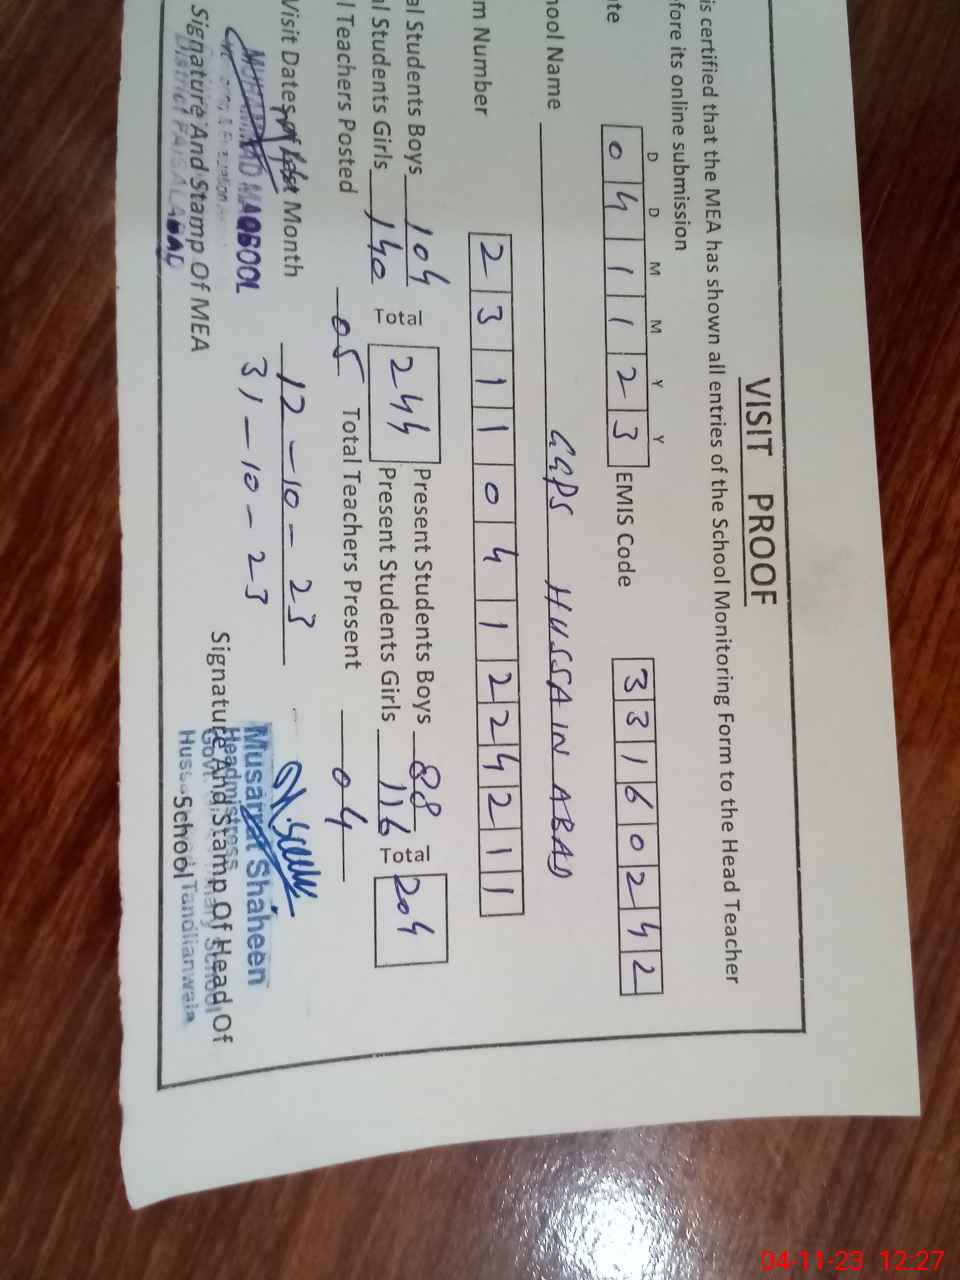 VISIT PROOF
is certified that the MEA has shown all entries of the School Monitoring Form to the Head Teacher
fore its online submission
D D M M Y Y
te 0 4 1 1 2 3 EMIS Code 3 3 1 6 0 2 4 2
hool Name GGPS HUSSAIN ABAD
m Number 2 3 1 1 0 4 1 2 2 4 2 1 1
al Students Boys 104 Total 244 Present Students Boys 88 Total 204
al Students Girls 140 Present Students Girls 116
l Teachers Posted 05 Total Teachers Present 04
Visit Dates of Last Month 12-10-23
31-10-23
MUHAMMAD MAQBOOL
Signature And Stamp Of MEA
District FAISALABAD
Musarrat Shaheen
Headmistress
Signature And Stamp Of Head Of
School
Tandlianwala
04-11-23 12:27